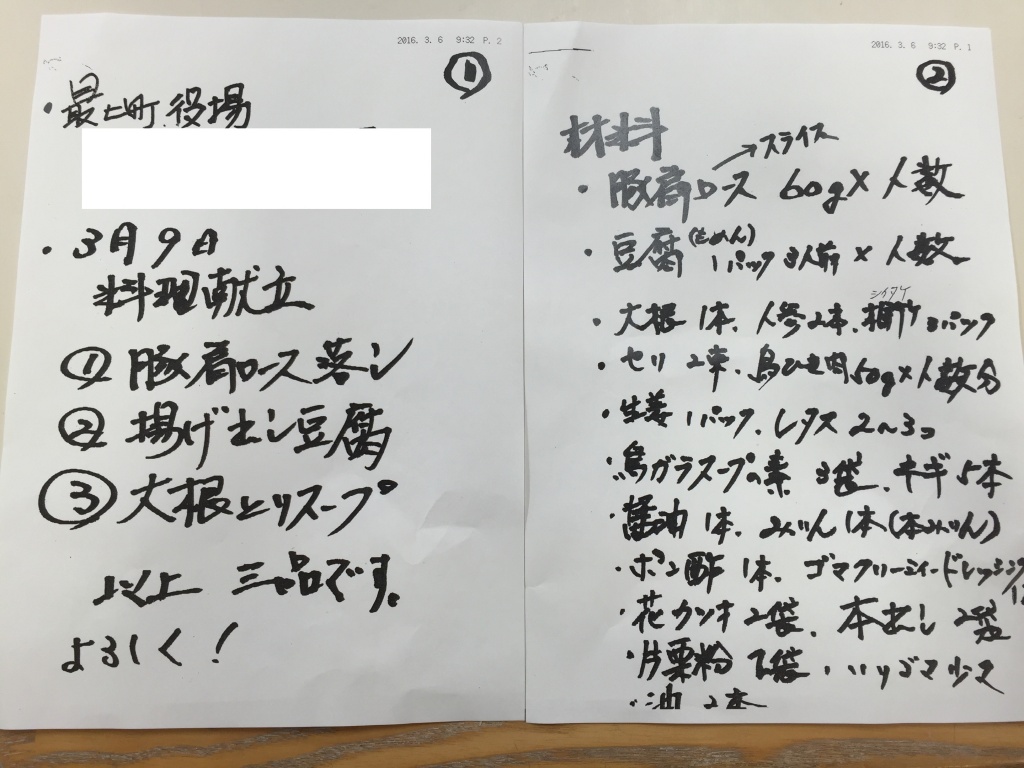 2016. 3. 6 9:32 P. 2
①
・最上町役場
・3月9日
料理献立
① 豚肩ロース落シ
② 揚げ出し豆腐
③ 大根とりスープ
以上 三品です。
よろしく!
2016. 3. 6 9:32 P. 1
②
材料
→スライス
・豚肩ロース 60g×人数
・豆腐(もめん) 1パック 3人前×人数
シイタケ
・大根 1本、人参2本、椎竹 3パック
・セリ 2束、鳥ひき肉50g×人数分
・生姜 1パック、レタス 2〜3コ
・鳥ガラスープの素 3袋、ネギ 5本
・醤油 1本、みりん1本(本みりん)
・ポン酢 1本、ゴマクリーミィードレッシング
・花カツオ 2袋、本出し 2袋
・片栗粉 2袋、いりゴマ少々
・油 2本